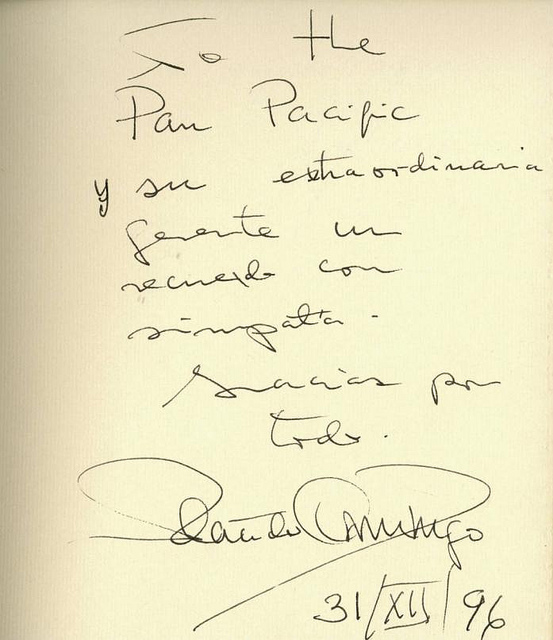 To the
Pan Pacific
y su extraordinaria
gerente un
recuerdo con
simpatía.
Gracias por
todo.
Plácido Domingo
31/XII/96